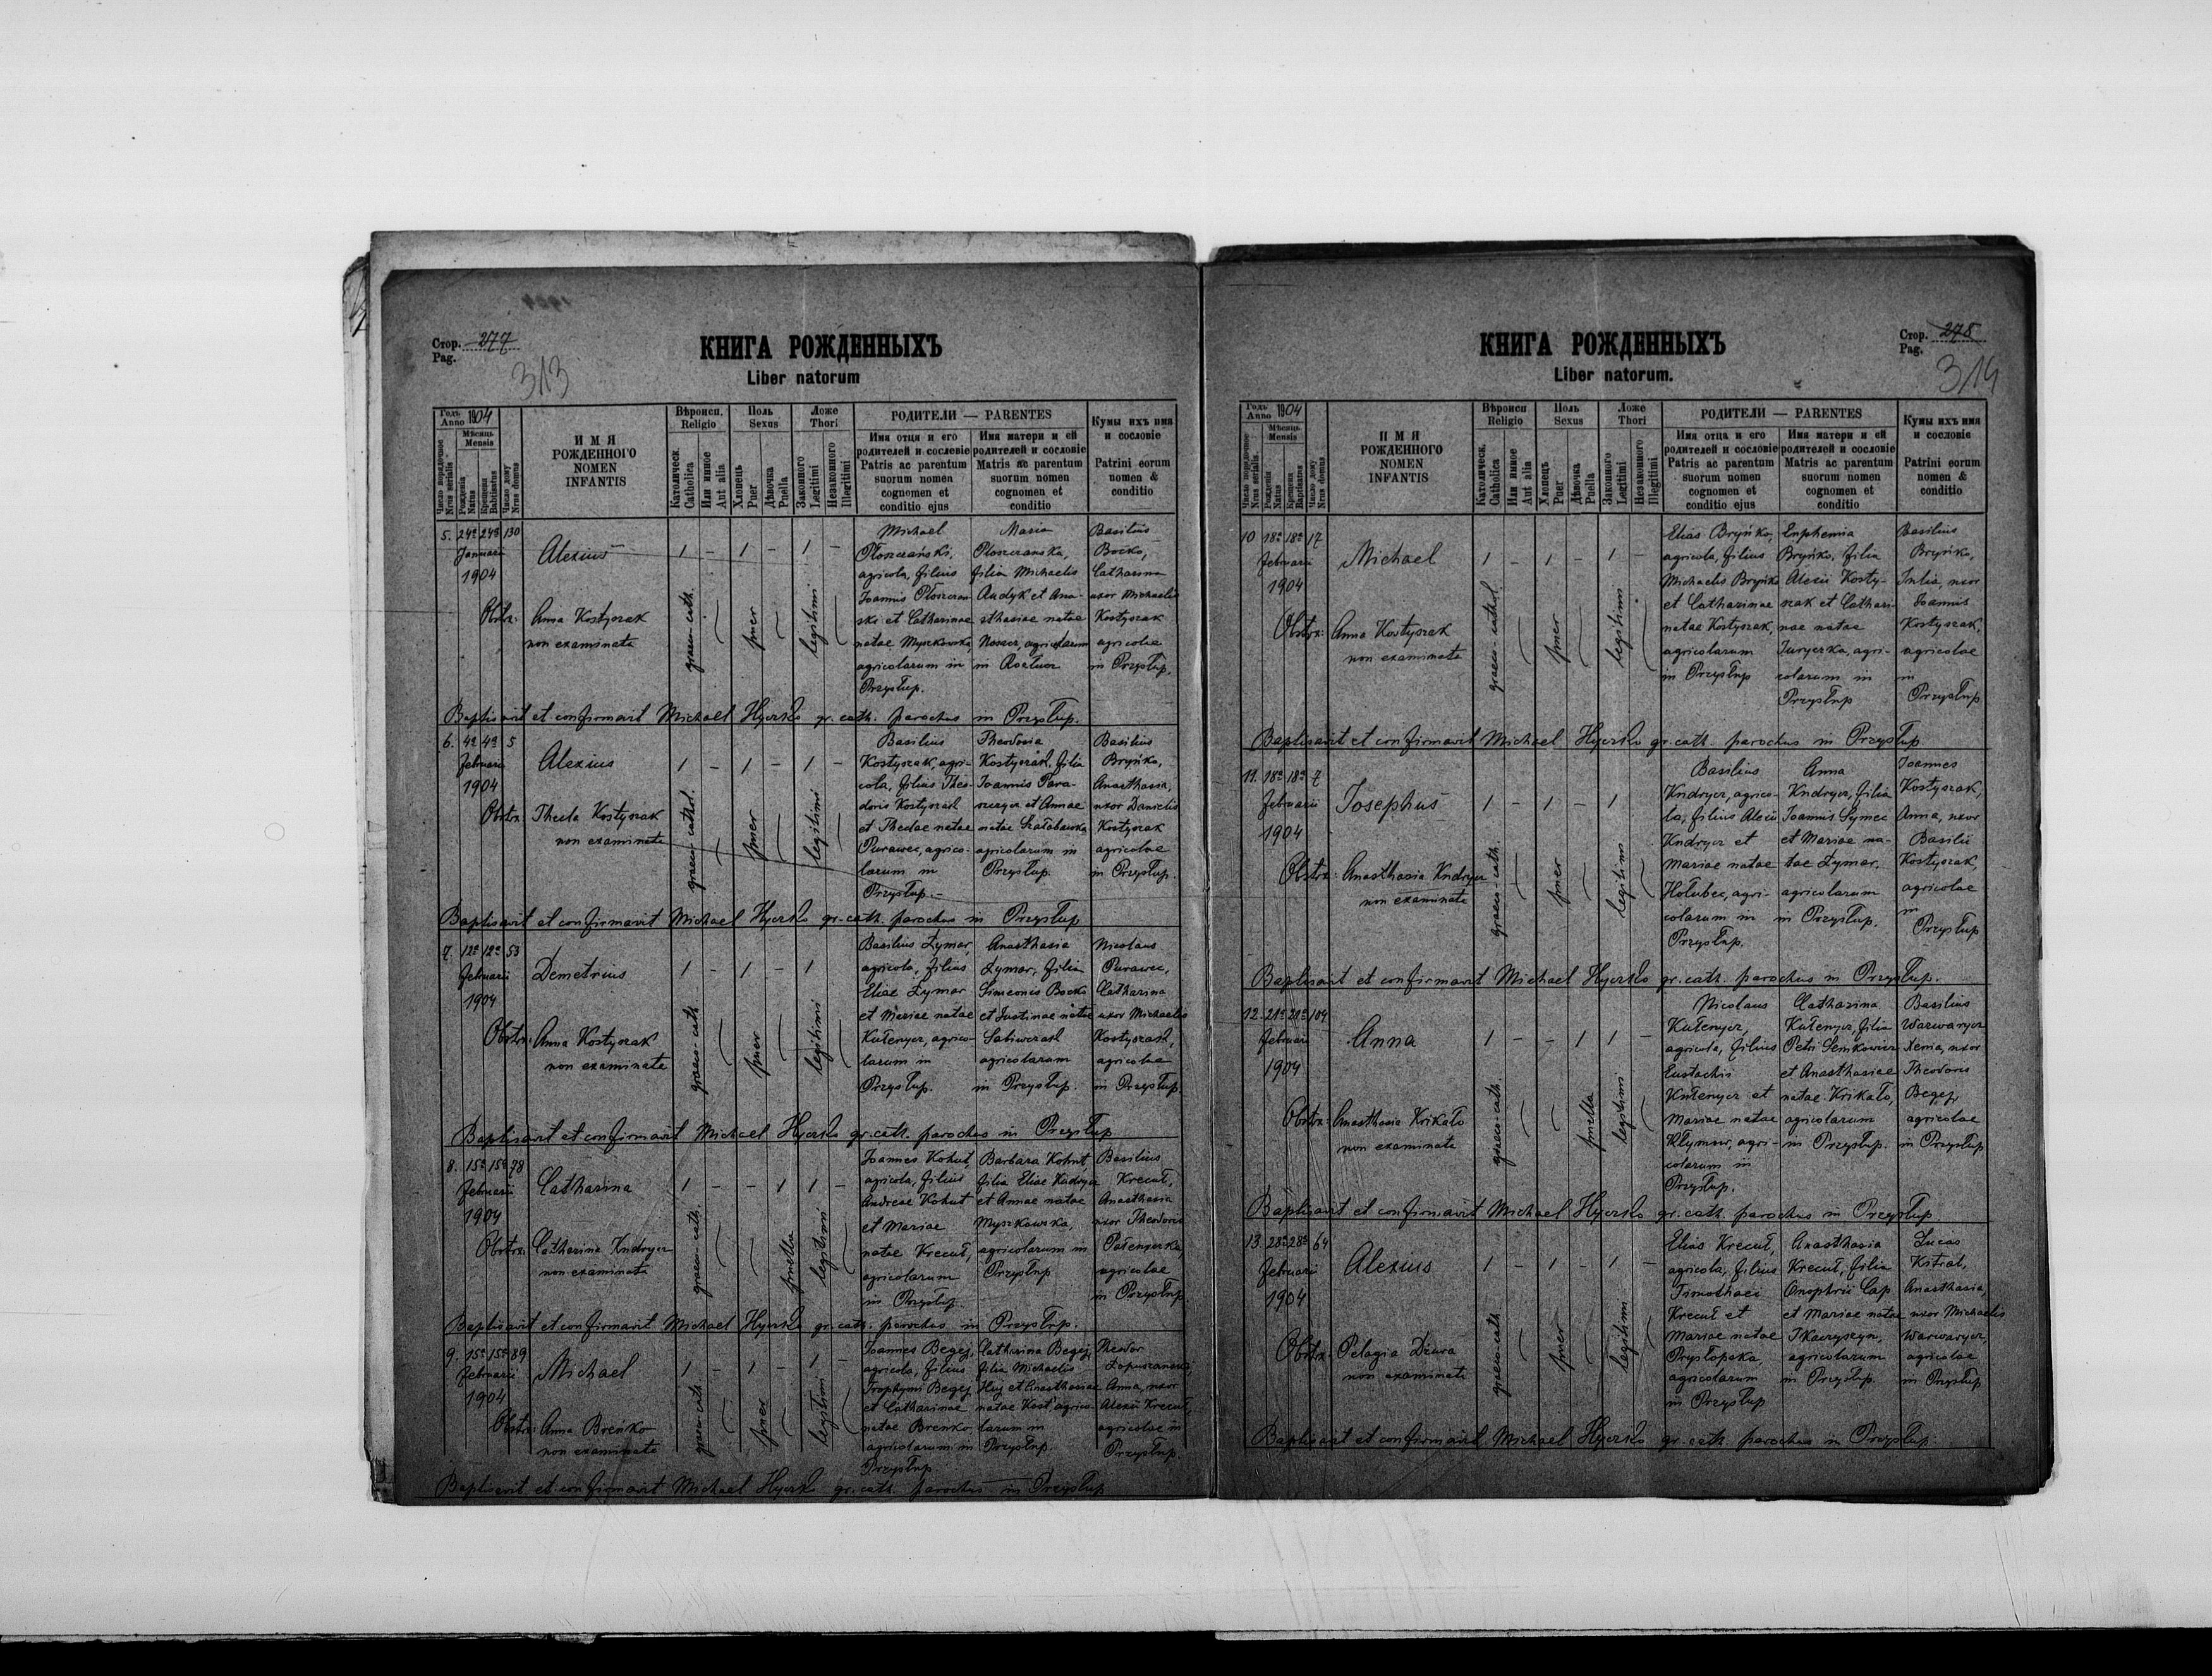 Стор. 277
Pag.
313
КНИГА РОЖДЕННЫХЪ
Liber natorum
Годъ Anno 1904
Мѣсяць Mensis
Число порядочное Nrus serialis
Рожденія Natus
Крещенія Babtisatus
Число дому Nrus domus
ИМЯ
РОЖДЕННОГО
NOMEN
INFANTIS
Вѣроисп. Religio
Католическ. Catholica
Или инное Aut alia
Поль Sexus
Хлопець Puer
Дѣвочка Puella
Ложе Thori
Законного Legitimi
Незаконного Illegitimi
РОДИТЕЛИ — PARENTES
Имя отца и его родителей и сословіе
Patris ac parentum suorum nomen cognomen et conditio ejus
Имя матери и ей родителей и сословіе
Matris ac parentum suorum nomen cognomen et conditio
Кумы ихъ имя и сословіе
Patrini eorum nomen & conditio
5. 24ª 24ª 130
Januarii
1904
Alexius
1 – 1 – 1 –
graeco-cath.
puer
legitimi
Obstx: Anna Kostyszak
non examinata
Michael
Płoszczański,
agricola, filius
Joannis Płoszczań-
ski et Catharinae
natae Myszkowska,
agricolarum in
Przysłup.
Maria
Płoszczańska,
filia Michaelis
Andyk et Ana-
sthasiae natae
agricolarum
Basilius
Boćko,
Catharina
uxor Michaelis
Kostyszak
agricolae
in Przysłup.
Baptisavit et confirmavit Michael Hycrko gr. cath. parochus in Przysłup.
6. 4ª 4ª 5
Februarii
1904
Alexius
1 – 1 – 1 –
graeco-cathol.
puer
legitimi
Obstx. Thecla Kostyszak
non examinata
Basilius
Kostyszak, agri-
cola, filius Theo-
doris Kostyszak
et Theclae natae
Purawec, agrico-
larum in
Przysłup.
Theodosia
Kostyszak, filia
Joannis Para-
et Annae
natae
agricolarum in
Przysłup.
Basilius
Bryńko,
Anasthasia,
uxor Danielis
Kostyszak
agricolae
in Przysłup.
Baptisavit et confirmavit Michael Hycrko gr. cath. parochus in Przysłup
7. 12ª 12ª 53
Februarii
1904
Demetrius
1 – 1 – 1
graeco-cath.
puer
legitimi
Obstx: Anna Kostyszak
non examinata
Basilius Łymar,
agricola, filius
Eliae Łymar
et Mariae natae
Kułenycz, agrico-
larum in
Przysłup.
Anasthasia
Łymar, filia
Simeonis Boćko
et Justinae natae
agricolarum
in Przysłup.
Nicolaus
Purawec,
Catharina
uxor Michaelis
Kostyszak,
agricolae
in Przysłup.
Baptisavit et confirmavit Michael Hycrko gr. cath. parochus in Przysłup
8. 15ª 15ª 78
Februarii
1904
Catharina
1 – – 1 1 –
graeco-cath.
puella
legitimi
Obstx: Catharina Kndrycz
non examinata
Joannes Kohut,
agricola, filius
Andreae Kohut
et Mariae
natae Krecuł,
agricolarum
in Przysłup.
Barbara Kohut,
filia Eliae Kndrycz
et Annae natae
Myszkowska,
agricolarum in
Przysłup
Basilius
Krecuł,
Anasthasia
uxor Theodoris
agricolae
in Przysłup.
Baptisavit et confirmavit Michael Hycrko gr. cath. parochus in Przysłup.
9. 15ª 15ª 89
Februarii
1904
Michael
1 – 1 – 1 –
graeco-cath.
puer
legitimi
Obstx: Anna Breńko
non examinata
Joannes Begej,
agricola, filius
Trophymi Begej
et Catharinae
natae Breńko
agricolarum in
Przysłup
Catharina Begej,
filia Michaelis
et Anasthasiae
natae Kost, agrico-
larum in
Przysłup
Theodor
Anna, uxor
Alexii Krecuł,
agricolae in
Przysłup.
Baptisavit et confirmavit Michael Hycrko gr. cath. parochus in Przysłup
КНИГА РОЖДЕННЫХЪ
Liber natorum.
Стор. 278
Pag.
314
Годъ Anno 1904
Мѣсяць Mensis
Число порядочное Nrus serialis.
Рожденія Natus
Крещенія Baptisatus
Число дому Nrus domus
ИМЯ
РОЖДЕННОГО
NOMEN
INFANTIS
Вѣроисп Religio
Католическ. Catholica
Или инное Aut alia
Поль Sexus
Хлопець Puer
Дѣвочка Puella
Ложе Thori
Законного Legitimi
Незаконного Illegitimi
РОДИТЕЛИ — PARENTES
Имя отца и его родителей и сословіе
Patris ac parentum suorum nomen cognomen et conditio ejus
Имя матери и ей родителей и сословіе
Matris ac parentum suorum nomen cognomen et conditio
Кумы ихъ имя и сословіе
Patrini eorum nomen & conditio
10 18ª 18ª 17
Februarii
1904
Michael
1 – 1 – 1 –
graeco-cathol.
puer
legitimi
Obstx: Anna Kostyszak
non examinata
Elias Bryńko,
agricola, filius
Michaelis Bryńko
et Catharinae
natae Kostyszak,
agricolarum
in Przysłup
Euphemia
Bryńko, filia
Alexii Kosty-
szak et Cathari-
nae natae
Juryczka, agri-
colarum in
Przysłup
Basilius
Bryńko,
Julia, uxor
Joannis
Kostyszak,
agricolae
in
Przysłup
Baptisavit et confirmavit Michael Hycrko gr. cath. parochus in Przysłup
11. 18ª 18ª 7
Februarii
1904
Josephus
1 – 1 – 1
graeco-cath.
puer
legitimi
Obstx: Anasthasia Kndrycz
non examinata
Basilius
Kndrycz, agrico-
la, filius Alexii
Kndrycz et
Mariae natae
Hołubec, agri-
colarum in
Przysłup.
Anna
Kndrycz, filia
Joannis Symec
et Mariae na-
tae Łymar,
agricolarum
in Przysłup.
Joannes
Kostyszak,
Anna, uxor
Basilii
Kostyszak,
agricolae
in
Przysłup
Baptisavit et confirmavit Michael Hycrko gr. cath. parochus in Przysłup.
12. 21ª 21ª 104
Februarii
1904
Anna
1 – – 1 1 –
graeco-cath.
puella
legitimi
Obstx: Anasthasia Krikało
non examinata
Nicolaus
Kułenycz,
agricola, filius
Eustachii
Kułenycz et
Mariae natae
Kłymow, agri-
colarum in
Przysłup.
Catharina
Kułenycz, filia
Petri Senkowicz
et Anasthasiae
natae Krikało,
agricolarum
in Przysłup.
Basilius
Warwarycz
Xenia, uxor
Theodoris
Begej,
agricolae
in Przysłup
Baptisavit et confirmavit Michael Hycrko gr. cath. parochus in Przysłup
13. 28ª 28ª 64
Februarii
1904
Alexius
1 – 1 – 1 –
graeco-cath
puer
legitimi
Obstx: Pelagia Dziura
non examinata
Elias Krecuł,
agricola, filius
Timothaei
Krecuł et
Mariae natae
Prysłopska,
agricolarum
in Przysłup
Anasthasia
Krecuł, filia
Onophrii Cap
et Mariae natae
Tkaczyszyn,
agricolarum
in Przysłup.
Lucas
Anasthasia,
uxor Michaelis
Warwarycz,
agricolae
in Przysłup
Baptisavit et confirmavit Michael Hycrko gr. cath. parochus in Przysłup.